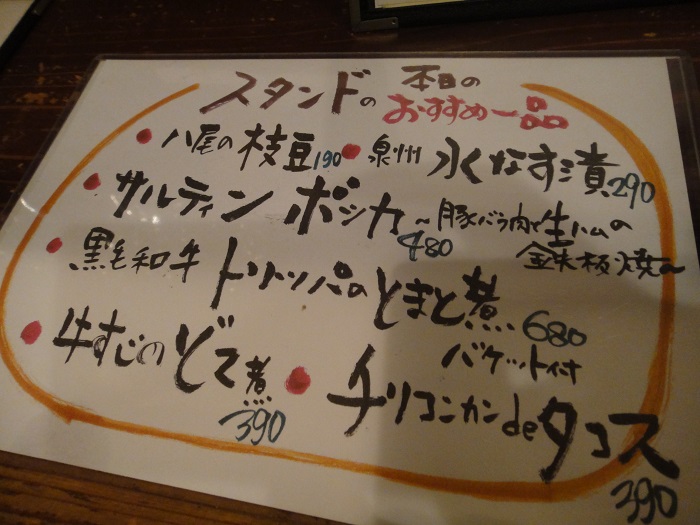 スタンドの 本日の おすすめ一品
八尾の枝豆 190
泉州 水なす漬 290
サルティン ボッカ 480
~豚バラ肉と生ハムの
鉄板焼~
黒毛和牛 トリッパの とまと煮 680
バケット付
牛すじの どて煮 390
チリコンカン de タコス 390